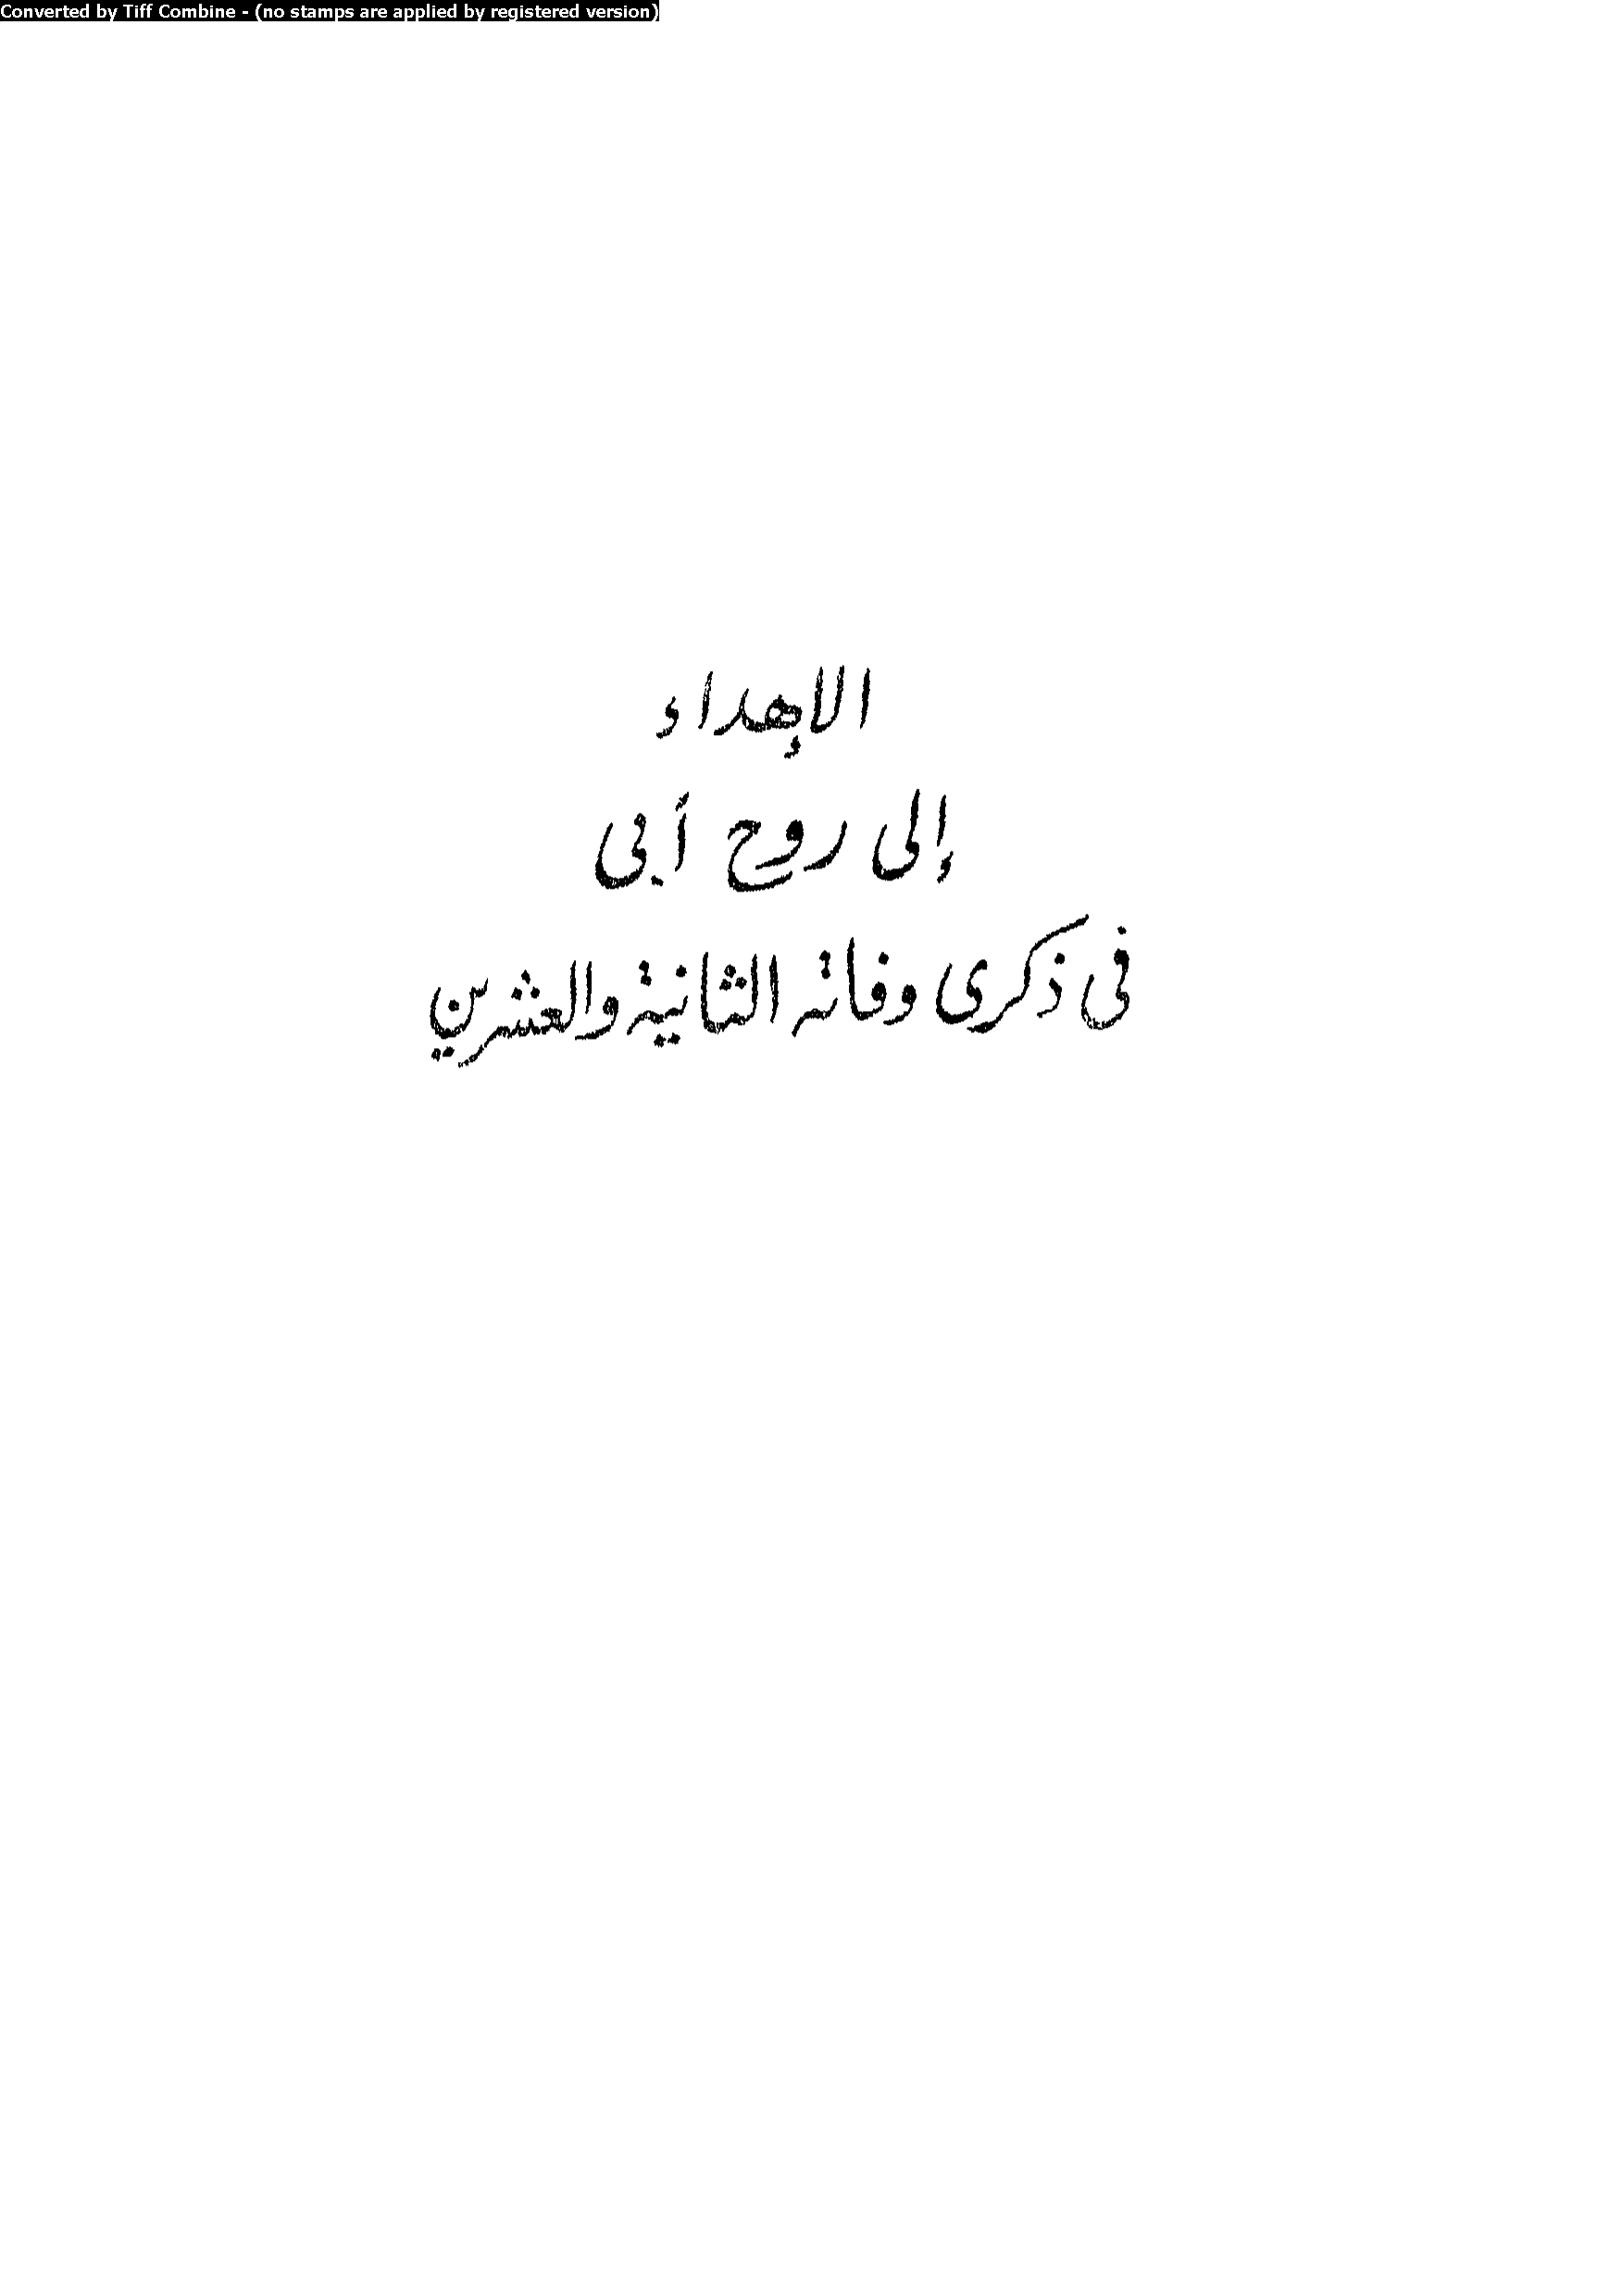 Converted by Tiff Combine - (no stamps are applied by registered version)
الإهداء
إلى روح أبى
فى ذكرى وفاته الثانية والعشرين